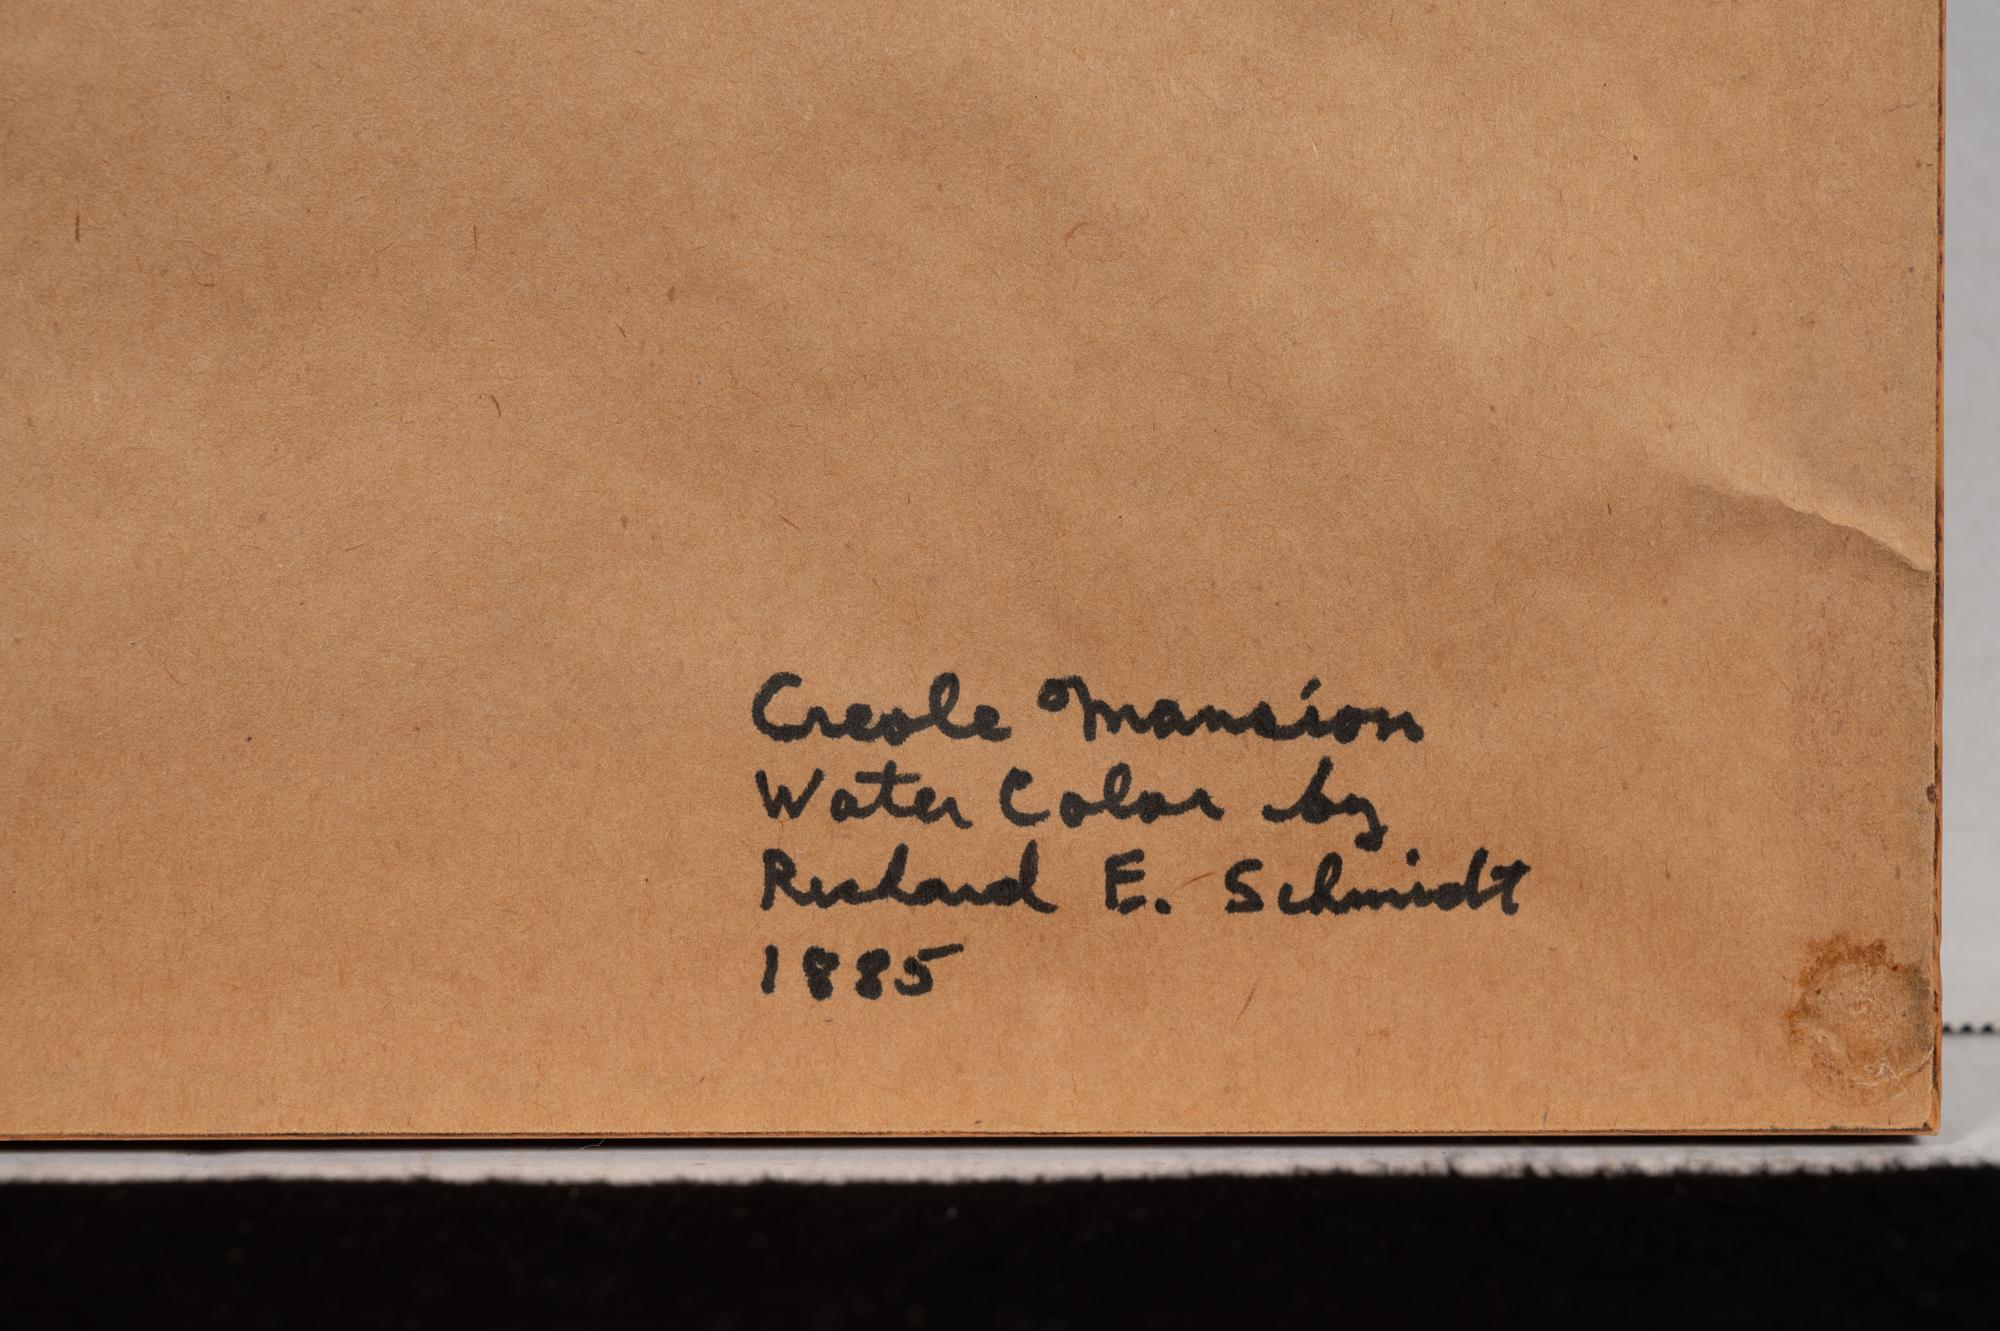 Creole Mansion
Water Color by
Richard E. Schmidt
1885